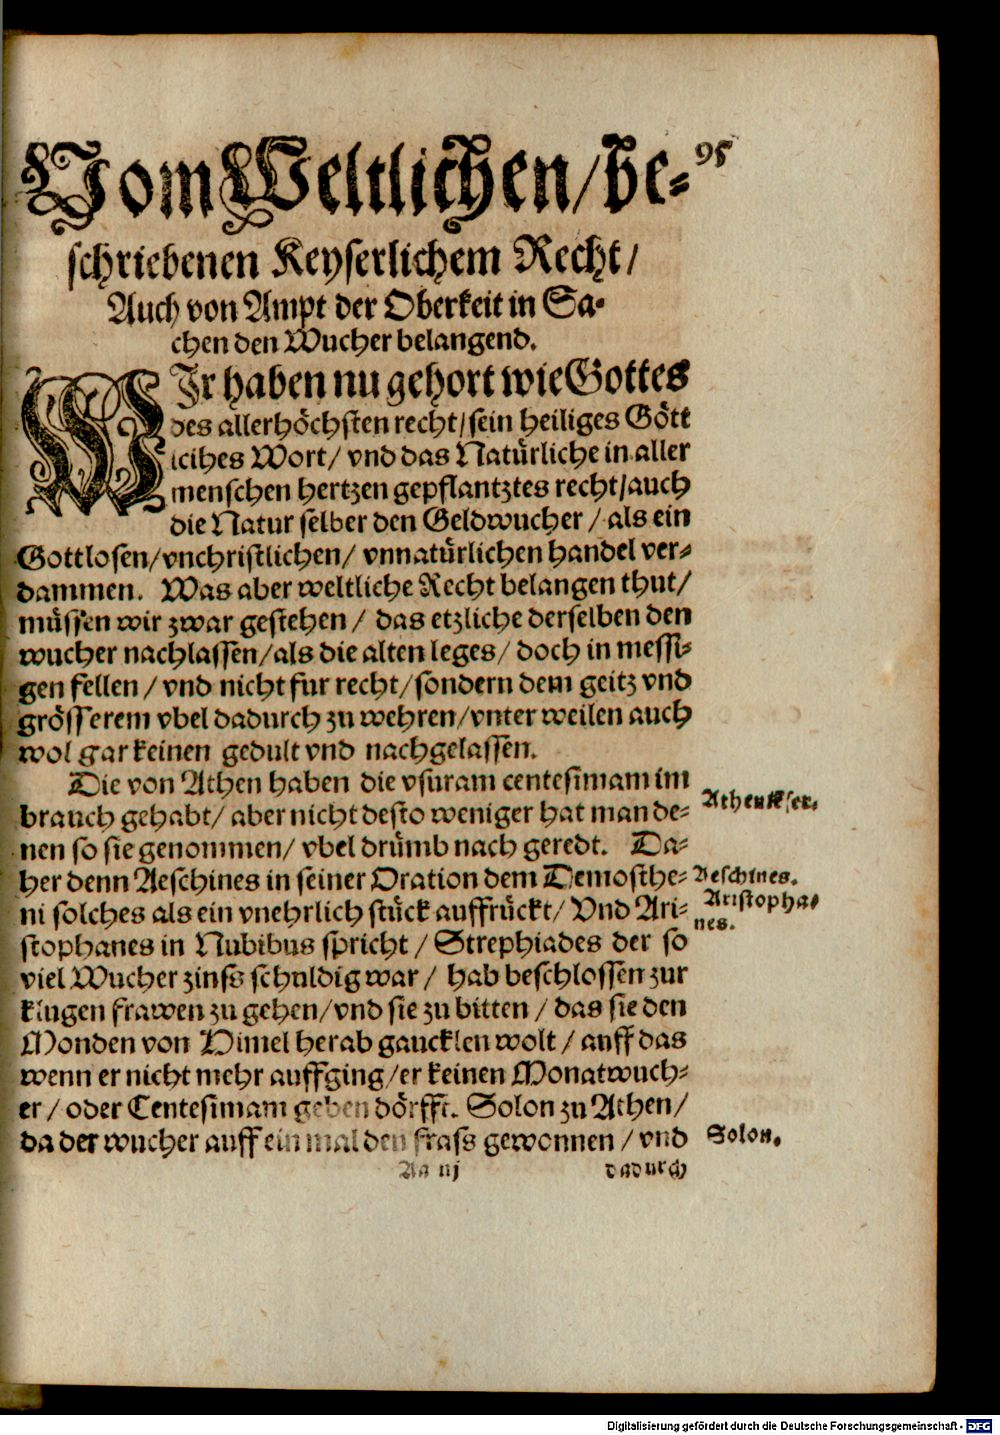 95
Vom Weltlichen/ be-
schriebenen Keyserlichem Recht/
Auch von Ampt der Oberkeit in Sa-
chen den Wucher belangend.
WIr haben nu gehort wie Gottes
des allerhöchsten recht/ sein heiliges Gött
licihes Wort/ vnd das Natürliche in aller
menschen hertzen gepflantztes recht/ auch
die Natur selber den Geldwucher/ als ein
Gottlosen/ vnchristlichen/ vnnatürlichen handel ver-
dammen. Was aber weltliche Recht belangen thut/
müssen wir zwar gestehen/ das etzliche derselben den
wucher nachlassen/ als die alten leges/ doch in messi-
gen fellen/ vnd nicht fur recht/ sondern dem geitz vnd
grösserem vbel dadurch zu wehren/ vnter weilen auch
wol gar keinen gedult vnd nachgelassen.
Die von Athen haben die vsuram centesimam im
brauch gehabt/ aber nicht desto weniger hat man de-
nen so sie genommen/ vbel drümb nach geredt. Da-
her denn Aeschines in seiner Oration dem Demosthe-
ni solches als ein vnehrlich stück auffrückt/ Vnd Ari-
stophanes in Nubibus spricht/ Strephiades der so
viel Wucher zinss schuldig war/ hab beschlossen zur
klugen frawen zu gehen/ vnd sie zu bitten/ das sie den
Monden von Himel herab gaucklen wolt/ auff das
wenn er nicht mehr auffging/ er keinen Monatwuch-
er/ oder Centesimam geben dörfft. Solon zu Athen/
da der wucher auff ein mal den frass gewonnen/ vnd
Aa iij dadurch
Athenienser.
Aeschines.
Aristopha-
nes.
Solon.
Digitalisierung gefördert durch die Deutsche Forschungsgemeinschaft - DFG